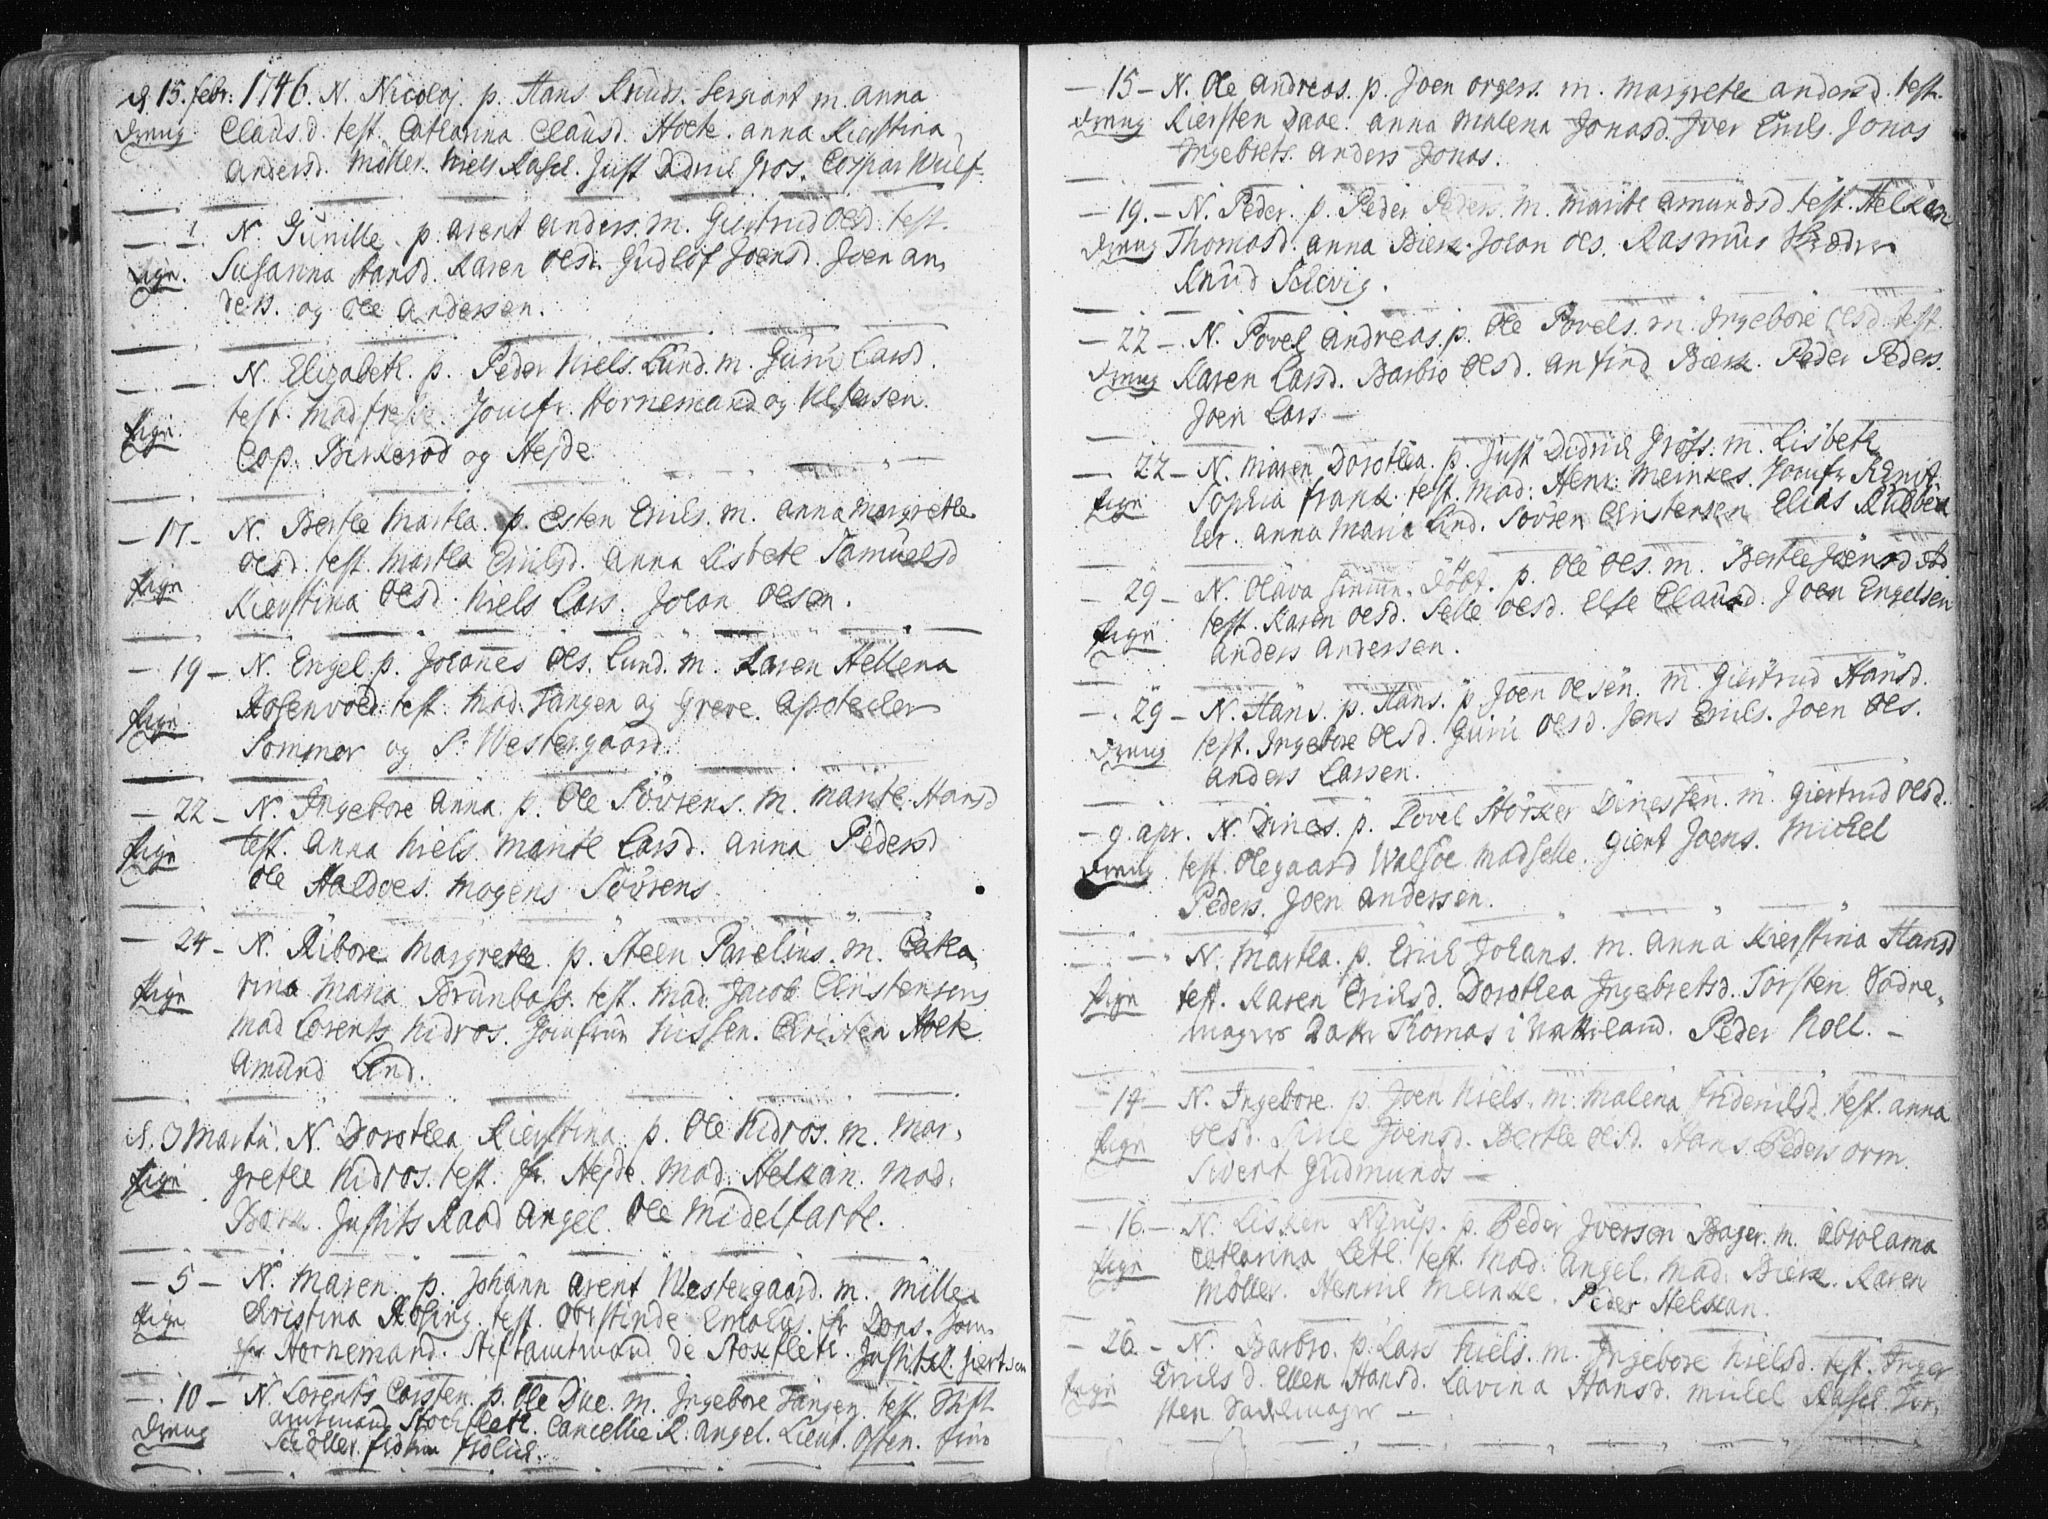 d. 15. febr: 1746. N. Nicolaj. p. Hans Knuds. Sergiant m. anna
dreng Claus.d. test. Catharina Clausd. Holte. anna Kierstina
Andersd. Möller. Niels Rasel. Just Didrik Gros. Caspar Wulf.
— — N. Gunille. p. arent anders. m. Giertrud Oesd. test.
Pige. Susanna Hansd. Karen Oesd. Gudlof Joensd. Joen an,
ders. og Ole Andersen.
— — N. Elizabeth. p. Peder Niels. Lund. m. Guru Larsd.
Pige test. mad. Jomfr. Hornemand og
Cap. Birkerod og Hejde
— 17 — N. Berthe Martha. p. Esten Eriks. m. anna Margrethe
Oesd. test. Martha Eriksd. Anna Lisbeth Samuelsd
Pige Kierstina Oesd. Niels Lars. Johan Oesen.
— 19 — N. Engel. p. Johannes Oes. Lund. m. Karen Hellena
Pige test. Mad. Tangen og Greve. Apoteker
Sommer og S: Westergaard.
— 22 — N. Ingebore Anna. p. Ole Sörens. m. Marite Hansd
Pige test. Anna Niels. Marite Larsd. Anna Pedersd
Ole Haldoes. Mogens Sörens
— 24 — N. Ribore Margrethe. p. Steen Parelius. m. Catha,
Pige rina Maria Brunbass. test. Mad. Jacob Christensens
mad Lorents Nidros. Jomfrue Nissen. Christen Holte
Amund Lind.
d. 3 Martii. N. Dorothea Kierstina. p. Ole Nidros. m. Mar,
Pige grethe Nidros. test. fr. Hejde. Mad. Helkan. Mad.
Justits Raad Angel. Ole Midelfarte.
— 5 — N. Maren. p. Johan Arent Westergaard. m. Mille
Pige Christina Röling. test. Obrstinde fr Dons. Jom,
fr Hornemand. Stiftamtmand de Stockfleth. Justitsr.
— 10 — N. Lorents Carsten. p. Ole Due. m. Ingebore Tangen. test. Stift
dreng amtmand Stockfleth. Cancellie R. Angel. Lieut. Osten.
Scöller. fröken frölich.
— 15 — N. Ole Andreas. p. Joen orgers. m. Margrethe Andersd. test.
dreng Kiersten Daae. Anna Malena Jonasd. Iver Eriks. Jonas
Ingebrets. Anders Jonas.
— 19. — N. Peder. p. Peder Peders. m. Marite Amundsd. test. Helkan
dreng Thomasd. Anna Bierk. Johan Oes. Rasmus
Knud Solevig.
— 22 — N. Povel Andreas. p. Ole Povels. m. Ingebore Oesd. test
dreng Karen Larsd. Barbro Oesd. Anfind Bierk. Peder Peders.
Joen Lars —
— 22 — N. Maren Dorothea. p. Just Didrik Gröss. m. Lisbeth
Pige Sophia Frank. test. Mad: Henr: Meinkes. Jomfr
ler. Anna Maria Lind. Sövren Christensen Elias
— 29 — N. Olava p. Ole Oes. m. Berthe Joensd.
Pige test. Karen Oesd. Selle Oesd. Else Clausd. Joen Engelsen
Anders Andersen.
— 29 — N. Hans. p. Hans. p. Joen Oesen. m. Giertrud Hansd.
dreng test. Ingebore Oesd. Guru Oesd. Jens Eriks. Joen Oes.
Anders Larsen.
— 9. apr. N. Dines. p. Povel Störker Dinessen. m. Giertrud Oesd.
dreng test. Olegaard Walsöe Madselle. Giert Joens. Michel
Peders. Joen Andersen.
— — N. Martha. p. Erik Johans. m. Anna Kierstina Hansd
Pige test. Karen Eriksd. Dorothea Ingebretsd. Torsten Sadne,
mager Thomas i Peder Noll. —
— 14 — N. Ingebore. p. Joen Niels. m. Malena Friderichsd. test. Anna
Pige Oesd. Joensd. Berthe Oesd. Hans Peders orm.
Sivert Gudmunds —
— 16. — N. Lisken Nyrup. p. Peder Iversen Bager. m. Abolama
Pige Catharina Leth. test. Mad: Angel. Mad: Bierk. Karen
Möller. Henrik Meinke. Peder Helkan.
— 26 — N. Barbro. p. Lars Niels. m. Ingebore Nielsd. test. Inger
Pige Eriks d. Ellen Hansd. Lavina Hansd. Mikel Rasel. Tor,
sten Sadelmager —